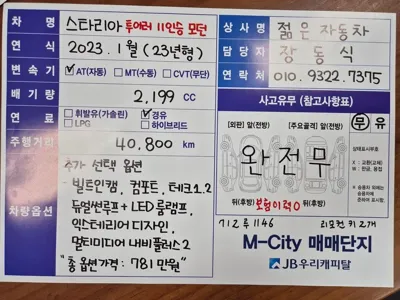 차 명 스타리아 투어러 11인승 모던
연 식 2023. 1월 (23년형)
변 속 기 ☑AT(자동) □MT(수동) □CVT(무단)
배 기 량 2,199 CC
연 료 □휘발유(가솔린) ☑경유
□LPG □하이브리드
주행거리 40,800 km
차량옵션
추가 선택 옵션
빌트인캠, 컴포트, 테크1.2
듀얼썬루프+LED룸램프,
익스테리어 디자인,
멀티미디어 내비플러스2
"총 옵션가격: 781만원"
상 사 명 젊은 자동차
담 당 자 장동식
연 락 처 010. 9322. 7375
사고유무 (참고사항표)
[외판] 앞(전방) [주요골격] 앞(전방) 무 유
완전무
상태표시부호
X : 교환(교체)
뒤(후방) 보험이력0 뒤(후방)
712루1146 리모컨 키 2개
M-City 매매단지
JB우리캐피탈